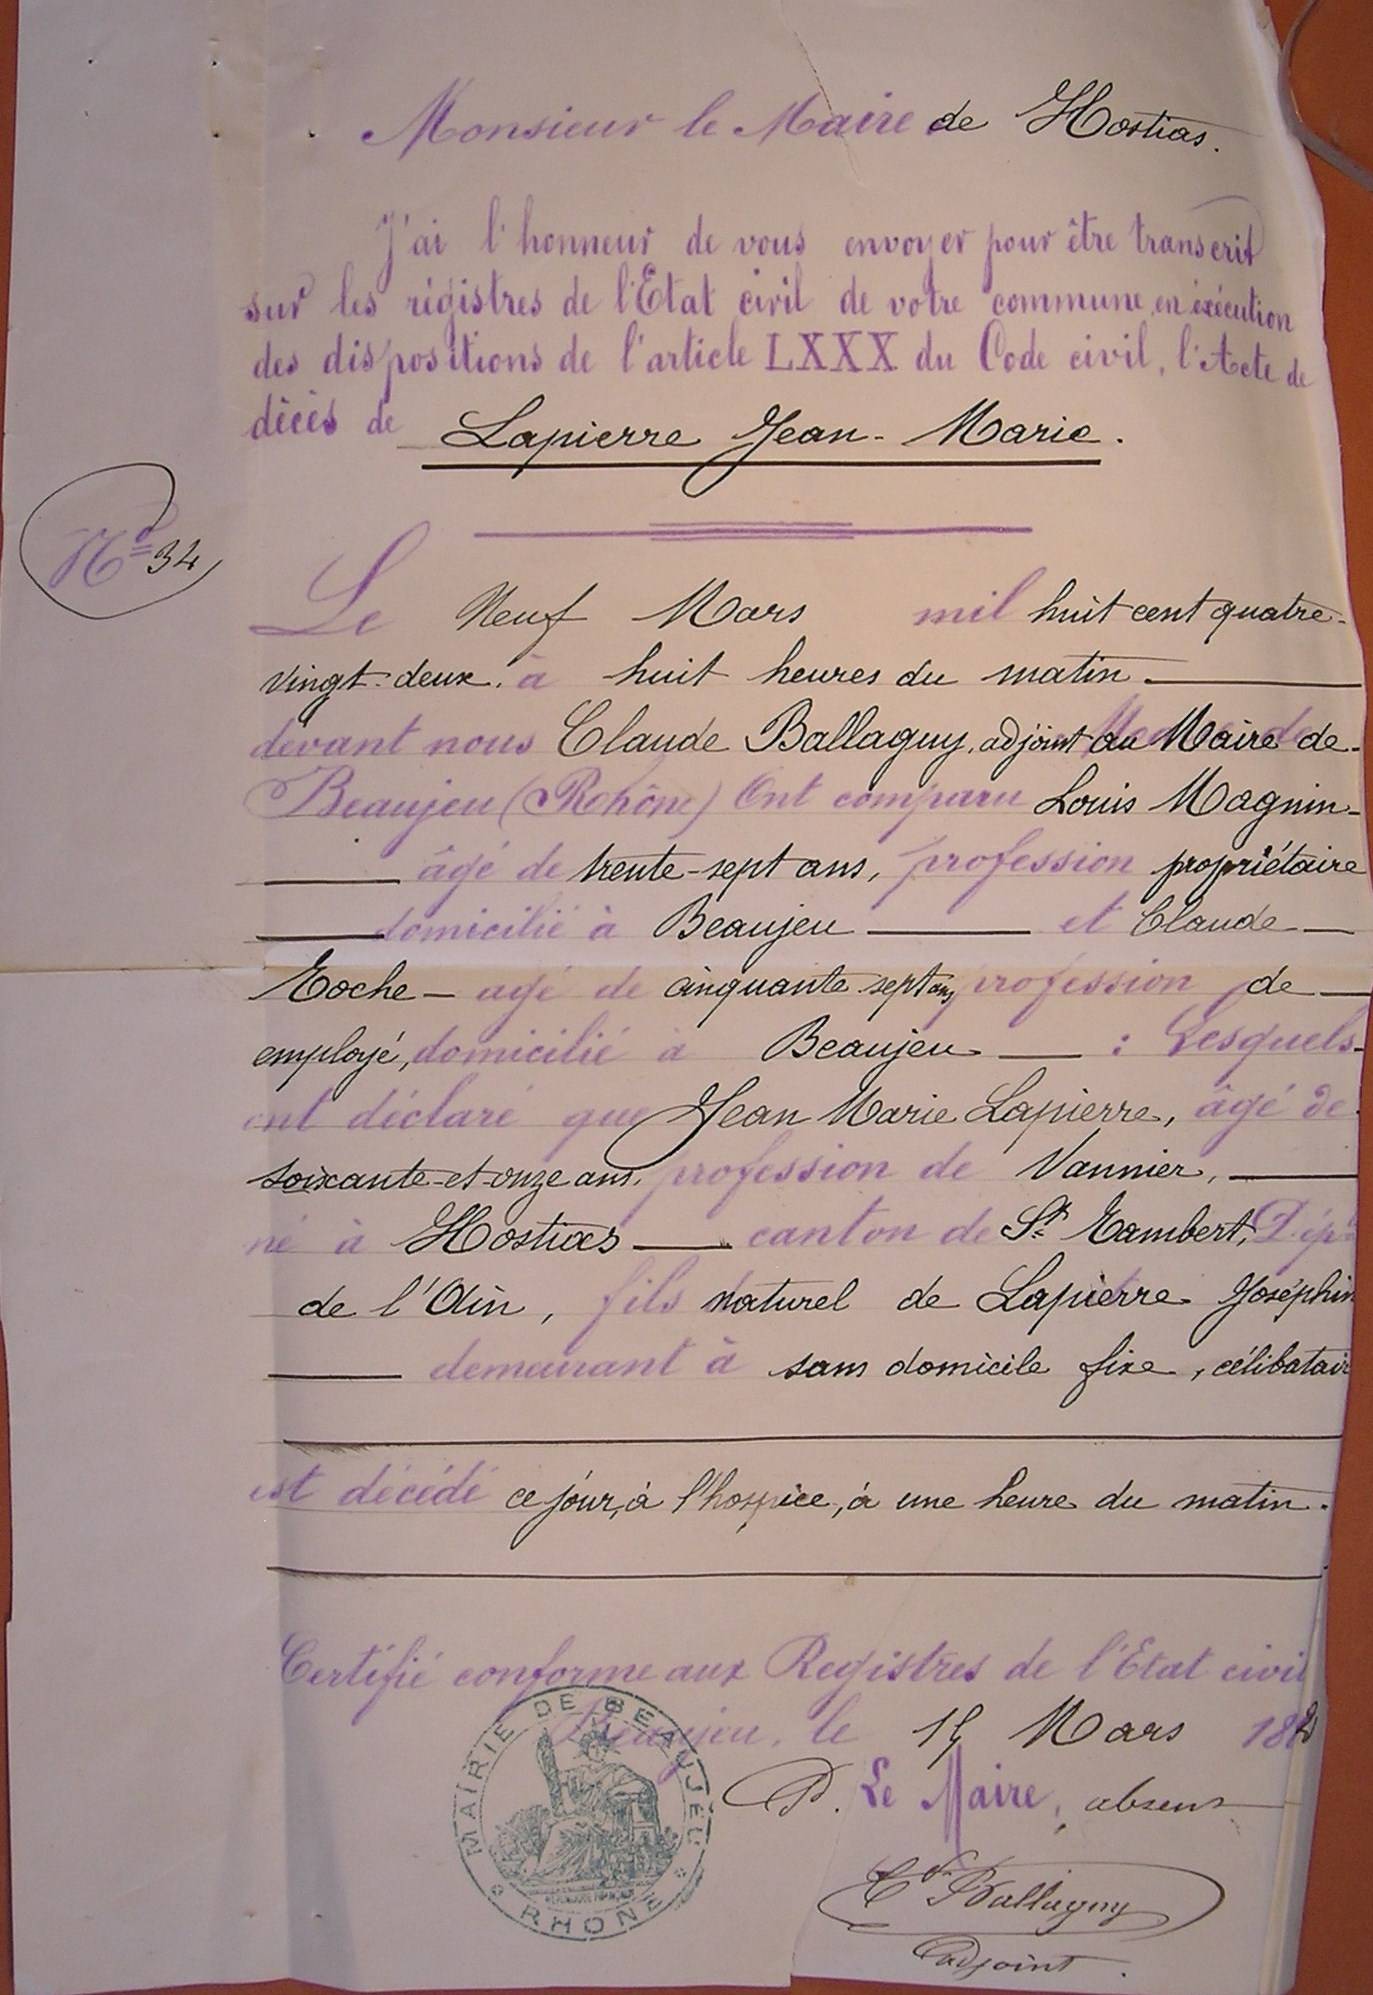 Monsieur le Maire de Hostias.
J'ai l'honneur de vous envoyer pour être transcrit
sur les régistres de l'Etat civil de votre commune, en éxécution
des dispositions de l'article LXXX du Code civil, l'Acte de
décès de Lapierre Jean-Marie.
No 34
Le Neuf Mars mil huit cent quatre-
vingt-deux. à huit heures du matin
devant nous Claude Ballaguy, adjoint au Maire de
Beaujeu (Rohône) Ont comparu Louis Magnin
âgé de trente-sept ans, profession propriétaire
domicilié à Beaujeu et Claude
Roche agé de cinquante sept ans, profession de
employé, domicilié à Beaujeu : Lesquels
ont déclaré que Jean Marie Lapierre, âgé de
soixante-et-onze ans, profession de Vannier,
né à Hostias canton de St Rambert, Dépt
de l'Ain, fils naturel de Lapierre Joséphin
demeurant à sans domicile fixe, célibatair
est décédé ce jour, à l'hospice, à une heure du matin.
Certifié conforme aux Registres de l'Etat civil
Beaujeu, le 15 Mars 1882
P. Le Maire, absent
Cde Ballaguy
adjoint.
MAIRIE DE BEAUJEU
RHONE